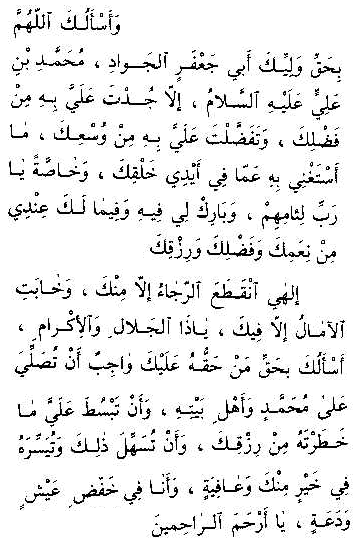 وَأَسْأَلُكَ ٱللَّهُمَّ
بِحَقِّ وَلِيِّكَ أَبي جَعْفَرٍ ٱلجَوادِ ، مُحَمَّدِ بْنِ
عَلِيٍّ عَلَيْهِ ٱلسَّلامُ ، إلاّ جُدْتَ عَلَيَّ بِهِ مِنْ
فَضْلِكَ ، وَتَفَضَّلْتَ عَلَيَّ بِهِ مِنْ وُسْعِكَ ، مٰا
أَسْتَغْنِي بِهِ عَمّا فِي أَيْدِي خَلْقِكَ ، وَخٰاصَّةً يٰا
رَبِّ لِئامِهِمْ ، وَبَارِكْ لِي فِيهِ وَفِيمٰا لَكَ عِنْدِي
مِنْ نِعَمِكَ وَفَضْلِكَ وَرِزْقِكَ
إِلٰهي ٱنْقَطَعَ ٱلرَّجٰاءُ إلاّ مِنْكَ ، وَخٰابَتِ
ٱلآمٰالُ إلاّ فِيكَ ، يٰاذَا ٱلجَلالِ وَٱلإِكْرامِ ،
أَسْأَلُكَ بِحَقِّ مَنْ حَقُّهُ عَلَيْكَ وٰاجِبٌ أَنْ تُصَلِّيَ
عَلىٰ مُحَمَّدٍ وَأَهْلِ بَيْتِهِ ، وَأَنْ تَبْسُطَ عَلَيَّ مٰا
حَظَرْتَهُ مِنْ رِزْقِكَ ، وَأَنْ تُسَهِّلَ ذٰلِكَ وَتُيَسِّرَهُ
فِي خَيْرٍ مِنْكَ وَعٰافِيَةٍ ، وَأَنَا فِي خَفْضِ عَيْشٍ
وَدَعَةٍ ، يٰا أَرْحَمَ ٱلرٰاحِمينَ